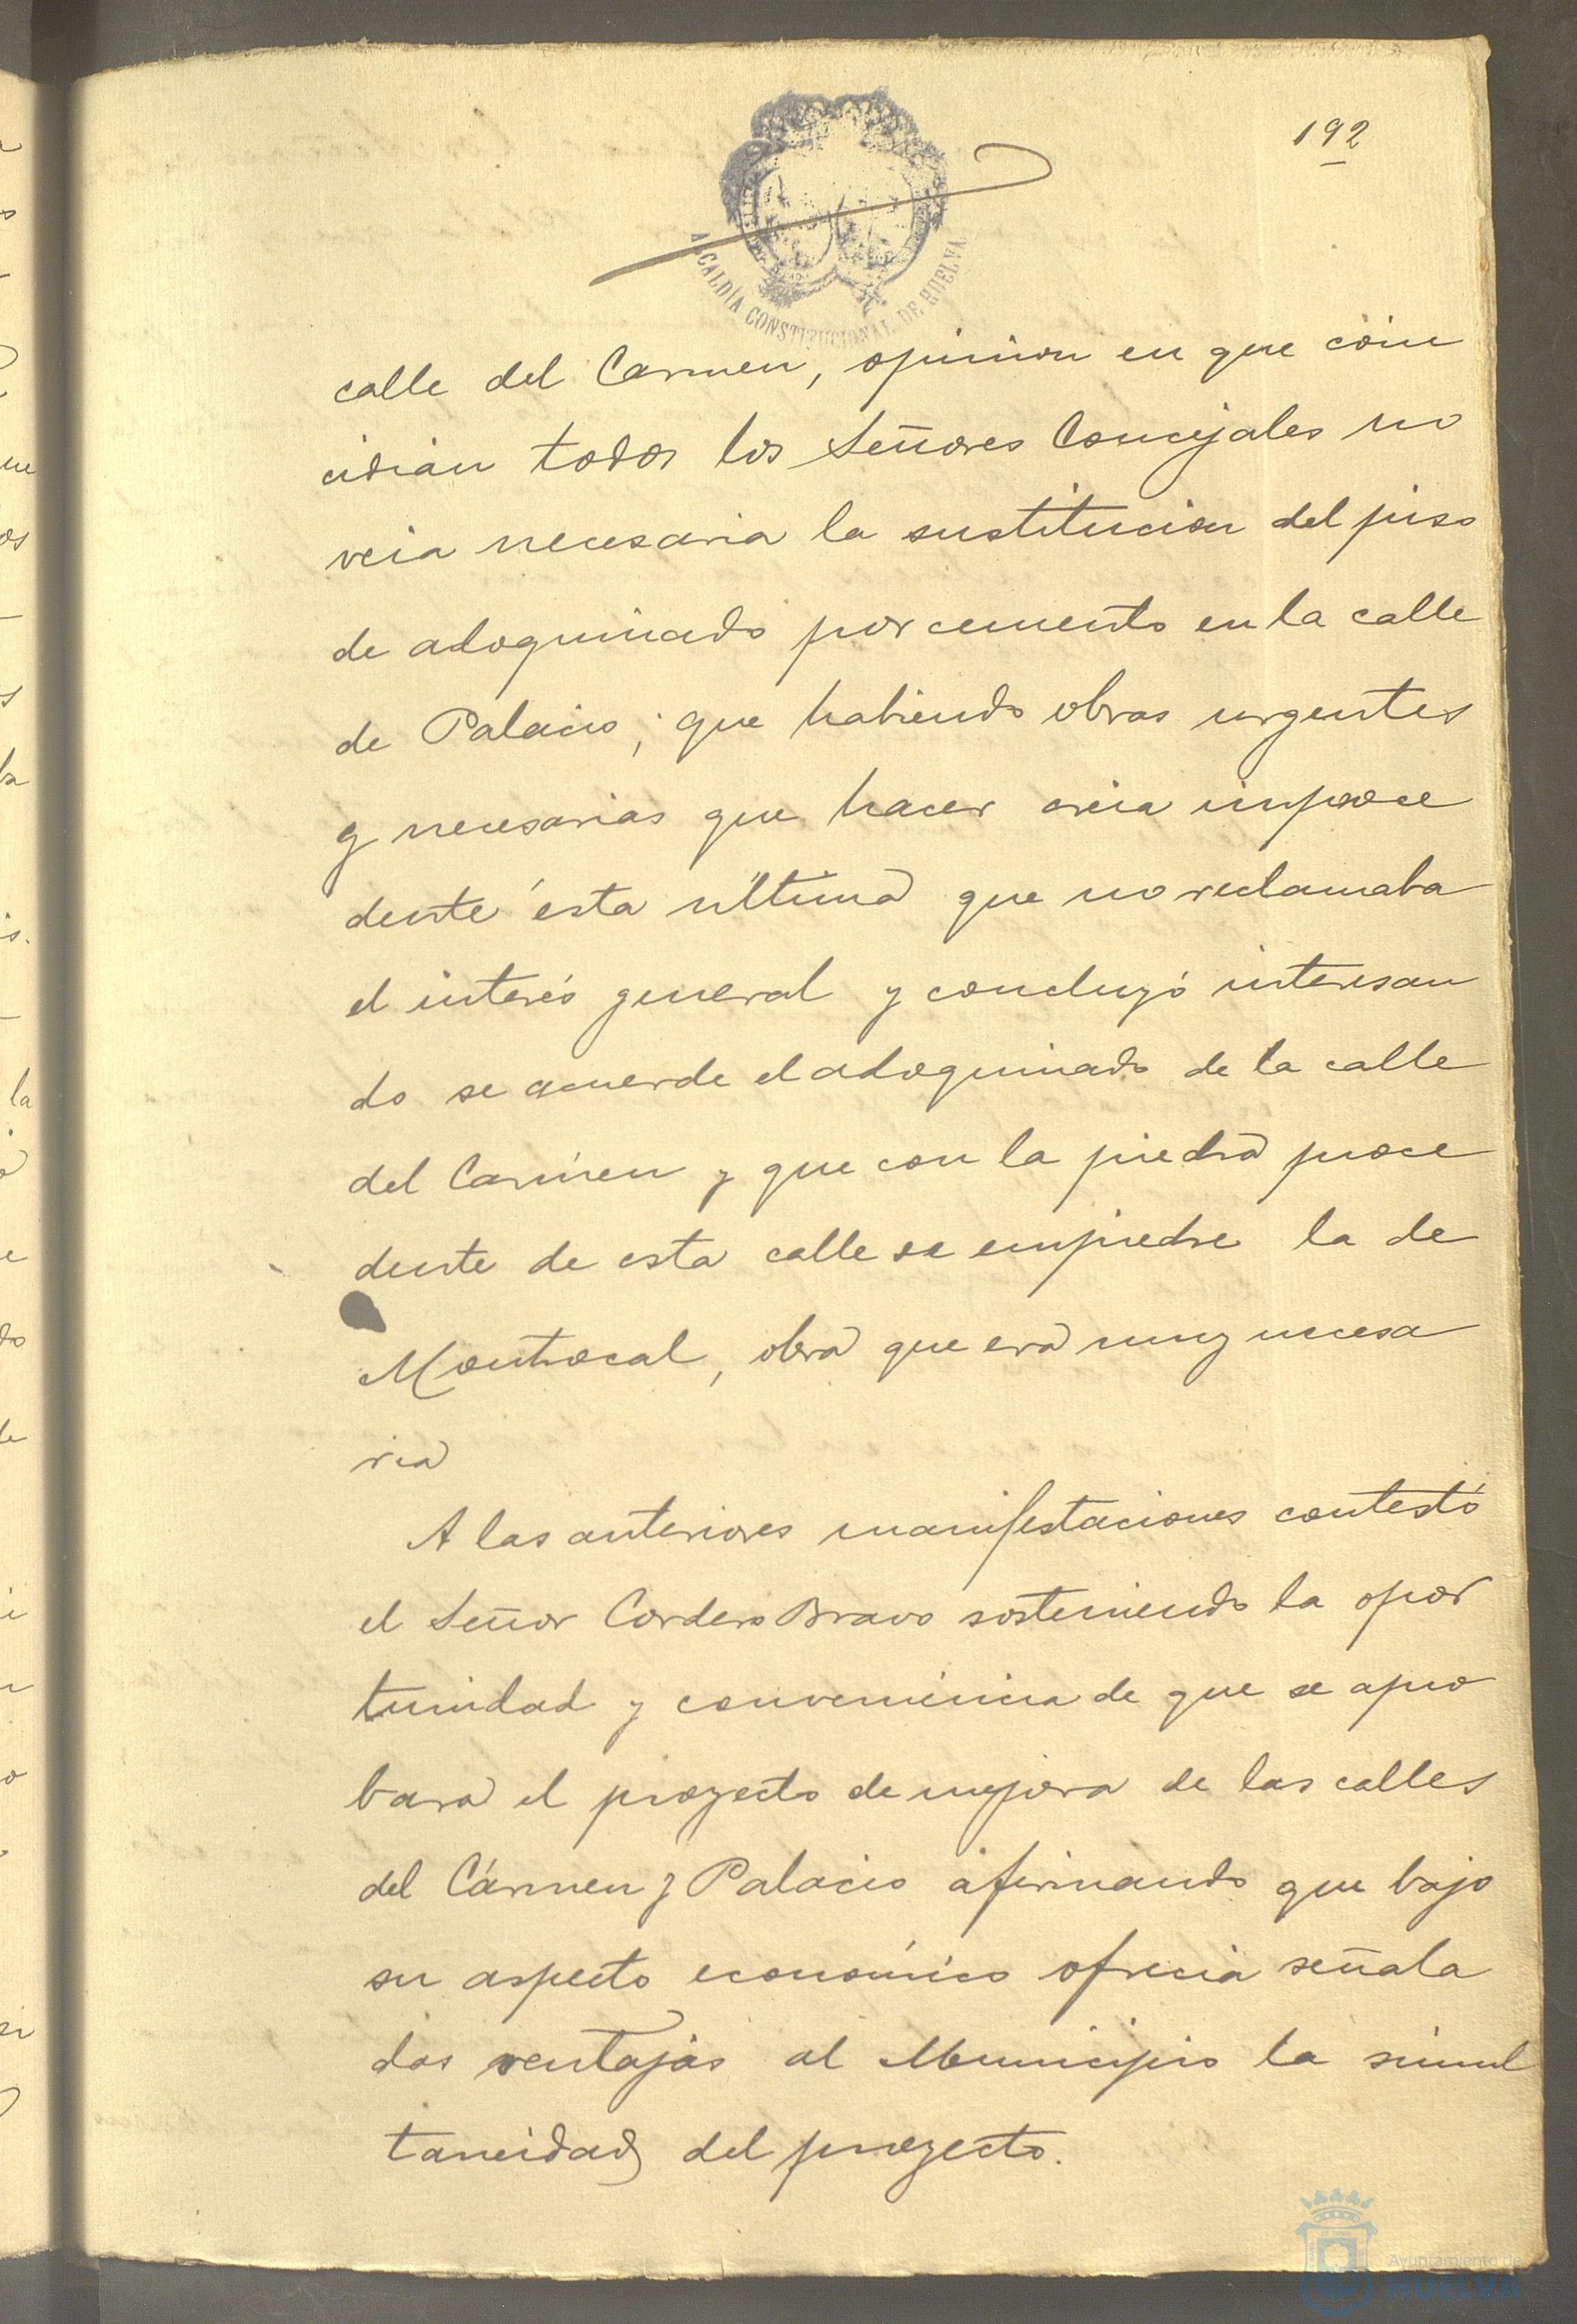 192
ALCALDÍA CONSTITUCIONAL DE HUELVA
calle del Carmen, opinion en que coin
cidian todos los Señores Concejales no
veia necesaria la sustitucion del piso
de adoquinado por cemento en la calle
de Palacio; que habiendo obras urgentes
y necesarias que hacer creia improce
dente ésta última que no reclamaba
el interés general y concluyó interesan
do se acuerde el adoquinado de la calle
del Carmen y que con la piedra proce
dente de esta calle se empiedre la de
Montrocal, obra que era muy necesa
ria
A las anteriores manifestaciones contestó
el Señor Cordero Bravo sosteniendo la opor
tunidad y conveniencia de que se apro
bara el proyecto de mejora de las calles
del Cármen y Palacio afirmando que bajo
su aspecto económico ofrecia señala
das ventajas al Municipio la simul
taneidad del proyecto.
Ayuntamiento de
HUELVA